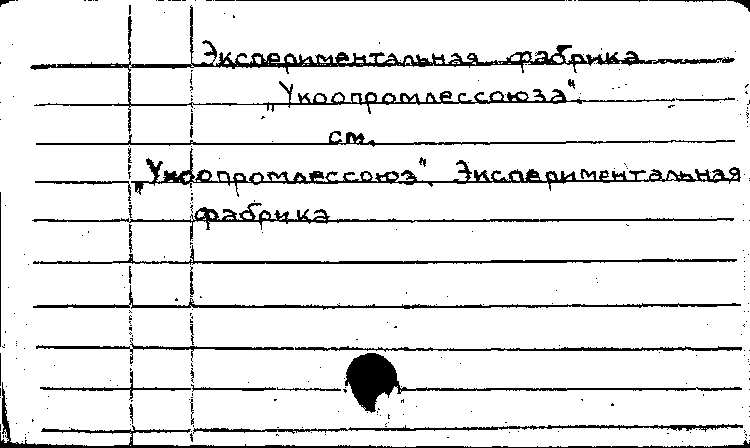 Экспериментальная фабрика
„Укоопромлессоюза".
см.
„Укоопромлессоюз". Экспериментальная
фабрика